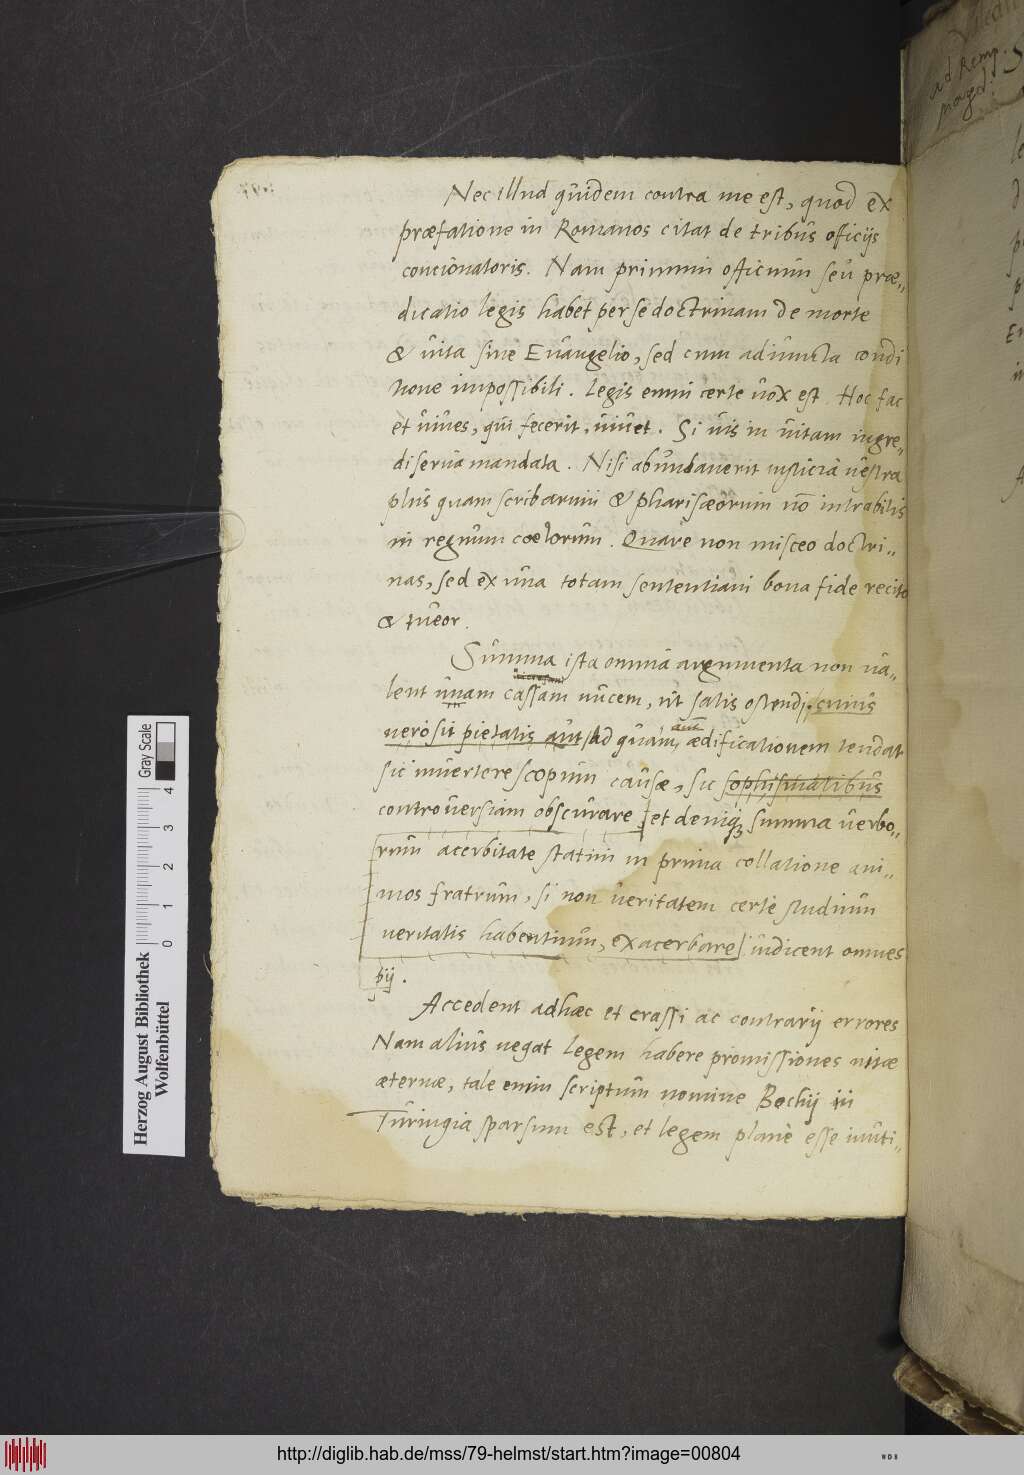 Nec illud quidem contra me est, quod ex
præfatione in Romanos citat de tribus officijs
concionatoris. Nam primum officium seu præ„
dicatio legis habet per se doctrinam de morte
& uita sine Euangelio, sed cum adiuncta condi
tione impossibili. Legis enim certe uox est. Hoc fac
et uiues, qui fecerit, uiuet. Si uis in uitam ingre„
di serua mandata. Nisi abundauerit iusticia uestra
plus quam scribarum & pharisæorum nō intrabitis
in regnum coelorum. Quare non misceo doctri„
nas, sed ex una totam sententiam bona fide recito
& tueor.
Summa ista omnia argumenta non ua„
lent unam cassam nucem, ut satis ostendi. cuius
uero sit pietatis aut ad quam aut ædificationem tendat
sic inuertere scopum causæ, sic sophismatibus
controuersiam obscurare et deniq; summa uerbo„
rum acerbitate statim in prima collatione ani„
mos fratrum, si non ueritatem certe studium
ueritatis habentium, exacerbare iudicent omnes
pij.
Accedent ad hæc et crassi ac contrarij errores
Nam alius negat legem habere promissiones uitæ
æternæ, tale enim scriptum nomine Bechij in
Turingia sparsum est, et legem plane esse inuti„
ad Remp.
Magd:
Herzog August Bibliothek
Wolfenbüttel
Gray Scale
0 1 2 3 4
http://diglib.hab.de/mss/79-helmst/start.htm?image=00804
WDB